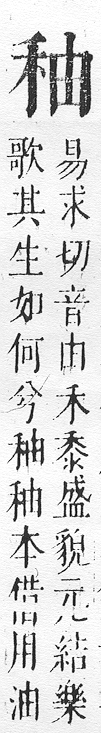 秞
易求切音由禾黍盛貌元結樂
歌其生如何兮秞秞本借用油